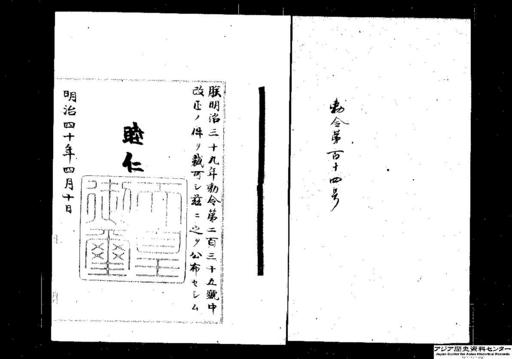 勅令第百十四号
朕明治三十九年勅令第二百三十五號中
改正ノ件ヲ裁可シ茲ニ之ヲ公布セシム
睦仁
天皇
御璽
明治四十年四月十日
アジア歴史資料センター
Japan Center for Asian Historical Records